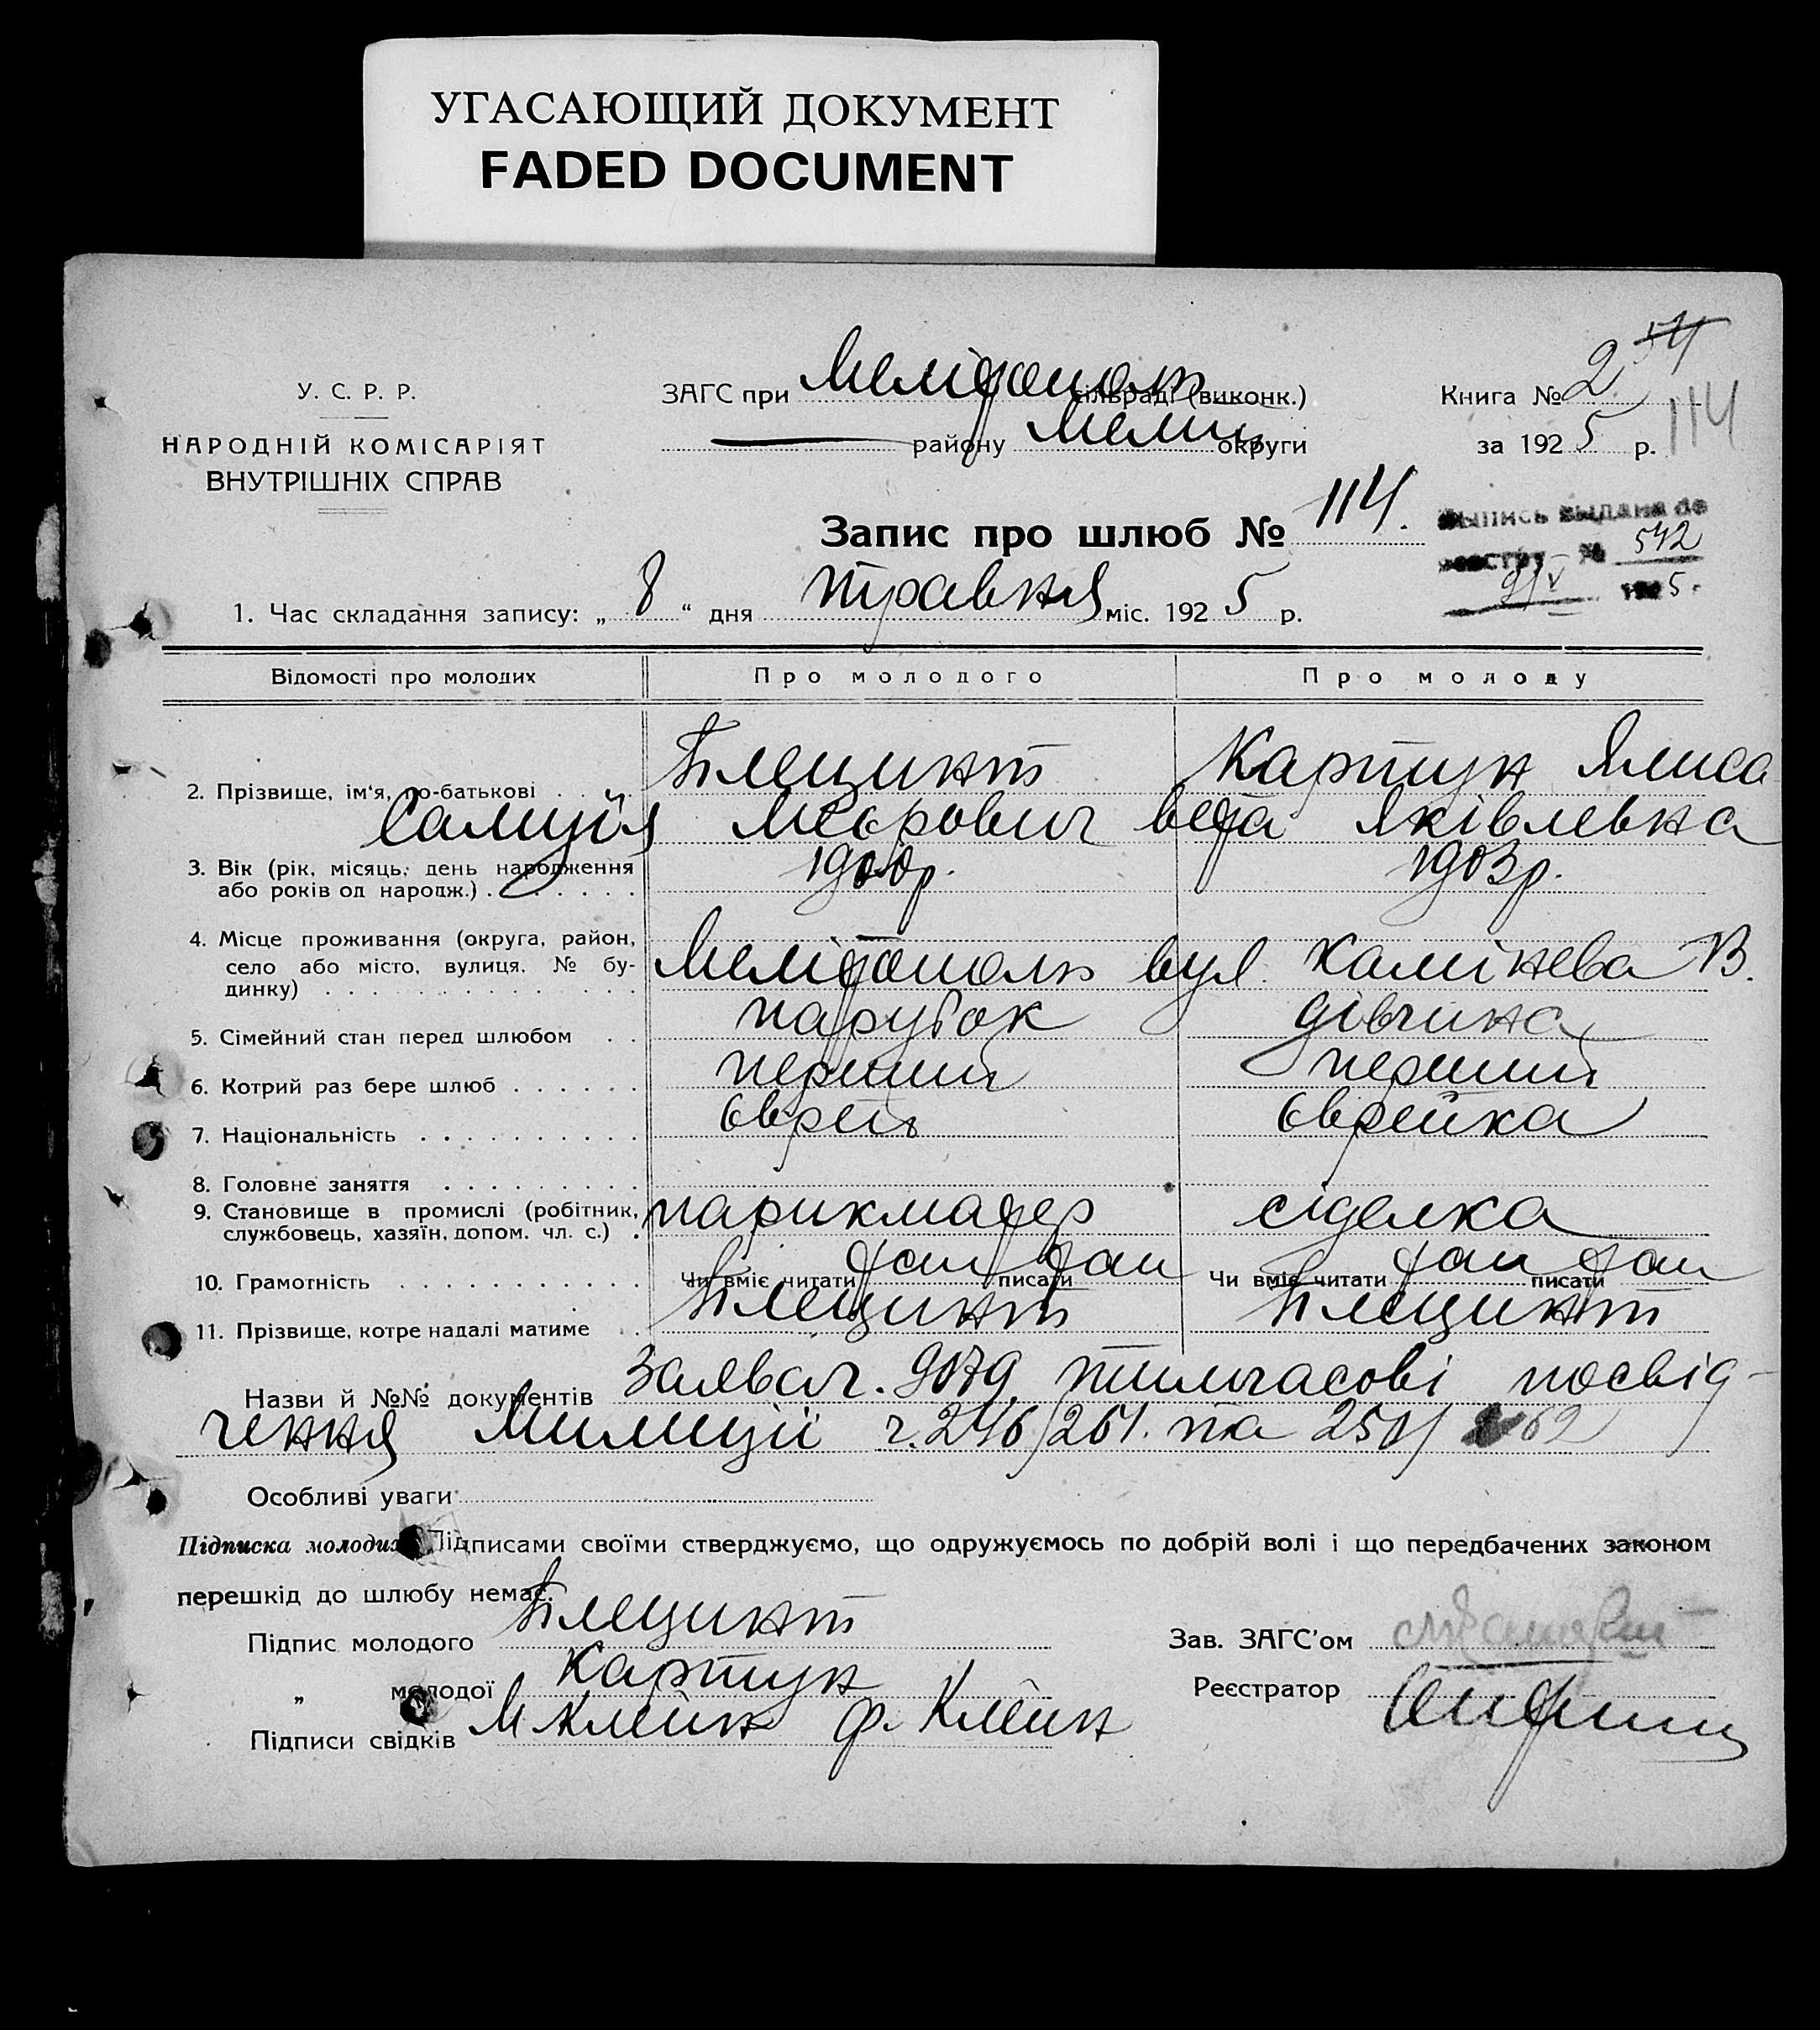 УГАСАЮЩИЙ ДОКУМЕНТ
FADED DOCUMENT
У. С. Р. Р.
НАРОДНІЙ КОМІСАРІЯТ
ВНУТРІШНІХ СПРАВ
ЗАГС при Мелітополь сільраді (виконк.)
району Мелит округи
Книга № 2
за 1925 р.
114
Запис про шлюб № 114.
Выпись выдана по
реестру № 542
9/V 1925 г
1. Час складання запису: „ 8 “ дня травня міс. 1925 р.
Відомості про молодих Про молодого Про молоду
2. Прізвище, ім'я, по-батькові Блещинт Картун Ялиса
Меєрович вета Яківлевна
3. Вік (рік, місяць, день народження 1900р. 1903р.
або років од народж.)
4. Місце проживання (округа, район,
село або місто, вулиця, № бу- Мелітополь вул. Камінева
динку)
5. Сімейний стан перед шлюбом парубок дівчина
6. Котрий раз бере шлюб перший перший
7. Національність Єврей Єврейка
8. Головне заняття
9. Становище в промислі (робітник, парикмахер сіделка
службовець, хазяїн, допом. чл. с.)
10. Грамотність Чи вміє читати так писати так Чи вміє читати так писати так
11. Прізвище, котре надалі матиме Блещинт Блещинт
Назви й №№ документів Заява ч. 9079, тимчасові посвід-
чення Милиції ч. 246/261. та 250/ 62
Особливі уваги
Підписка молодих Підписами своїми стверджуємо, що одружуємось по добрій волі і що передбачених законом
перешкід до шлюбу немає.
Підпис молодого Блещинт
Зав. ЗАГС'ом
„ молодої Картун
Реєстратор
Підписи свідків М Клейн Ф. Клейн